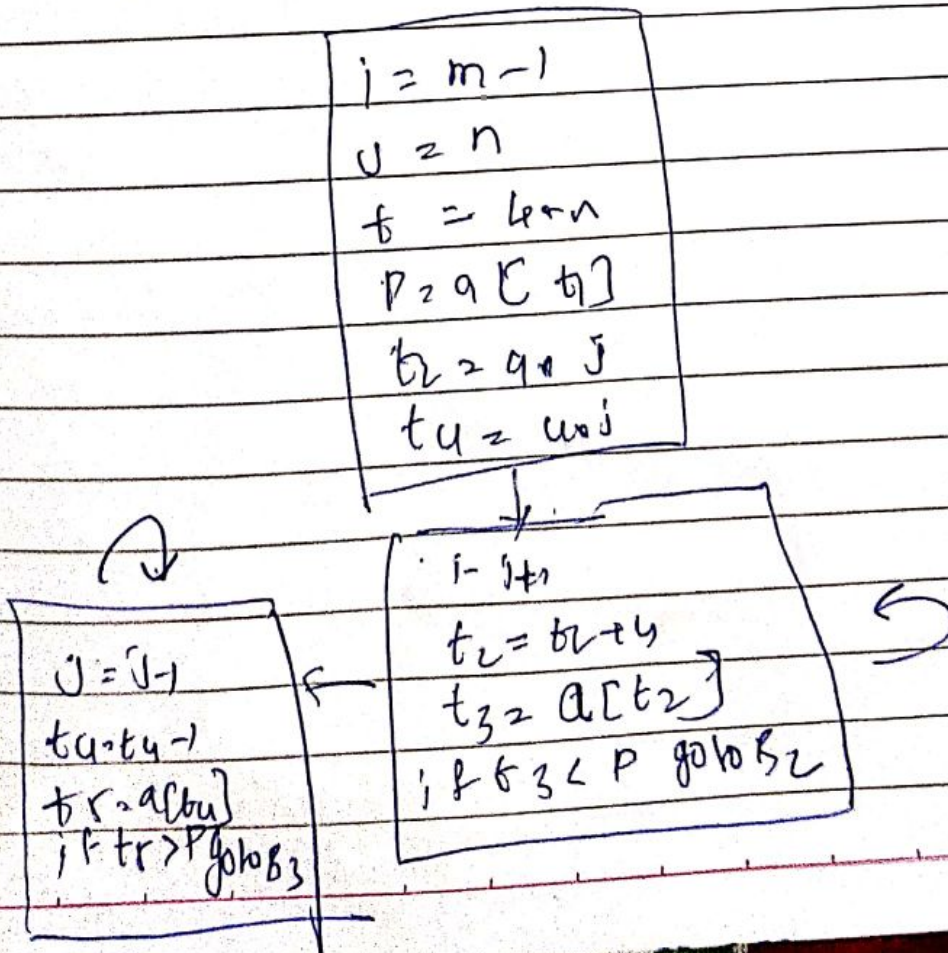 i = m-1
j = n
t = 4*n
P = a[t1]
t2 = 4* j
t4 = 4*j
i- i+1
t2 = t2+4
t3 = a[t2]
if t3 < P goto B2
j = j-1
t4=t4-1
t5=a[t4]
if t5>P goto B3